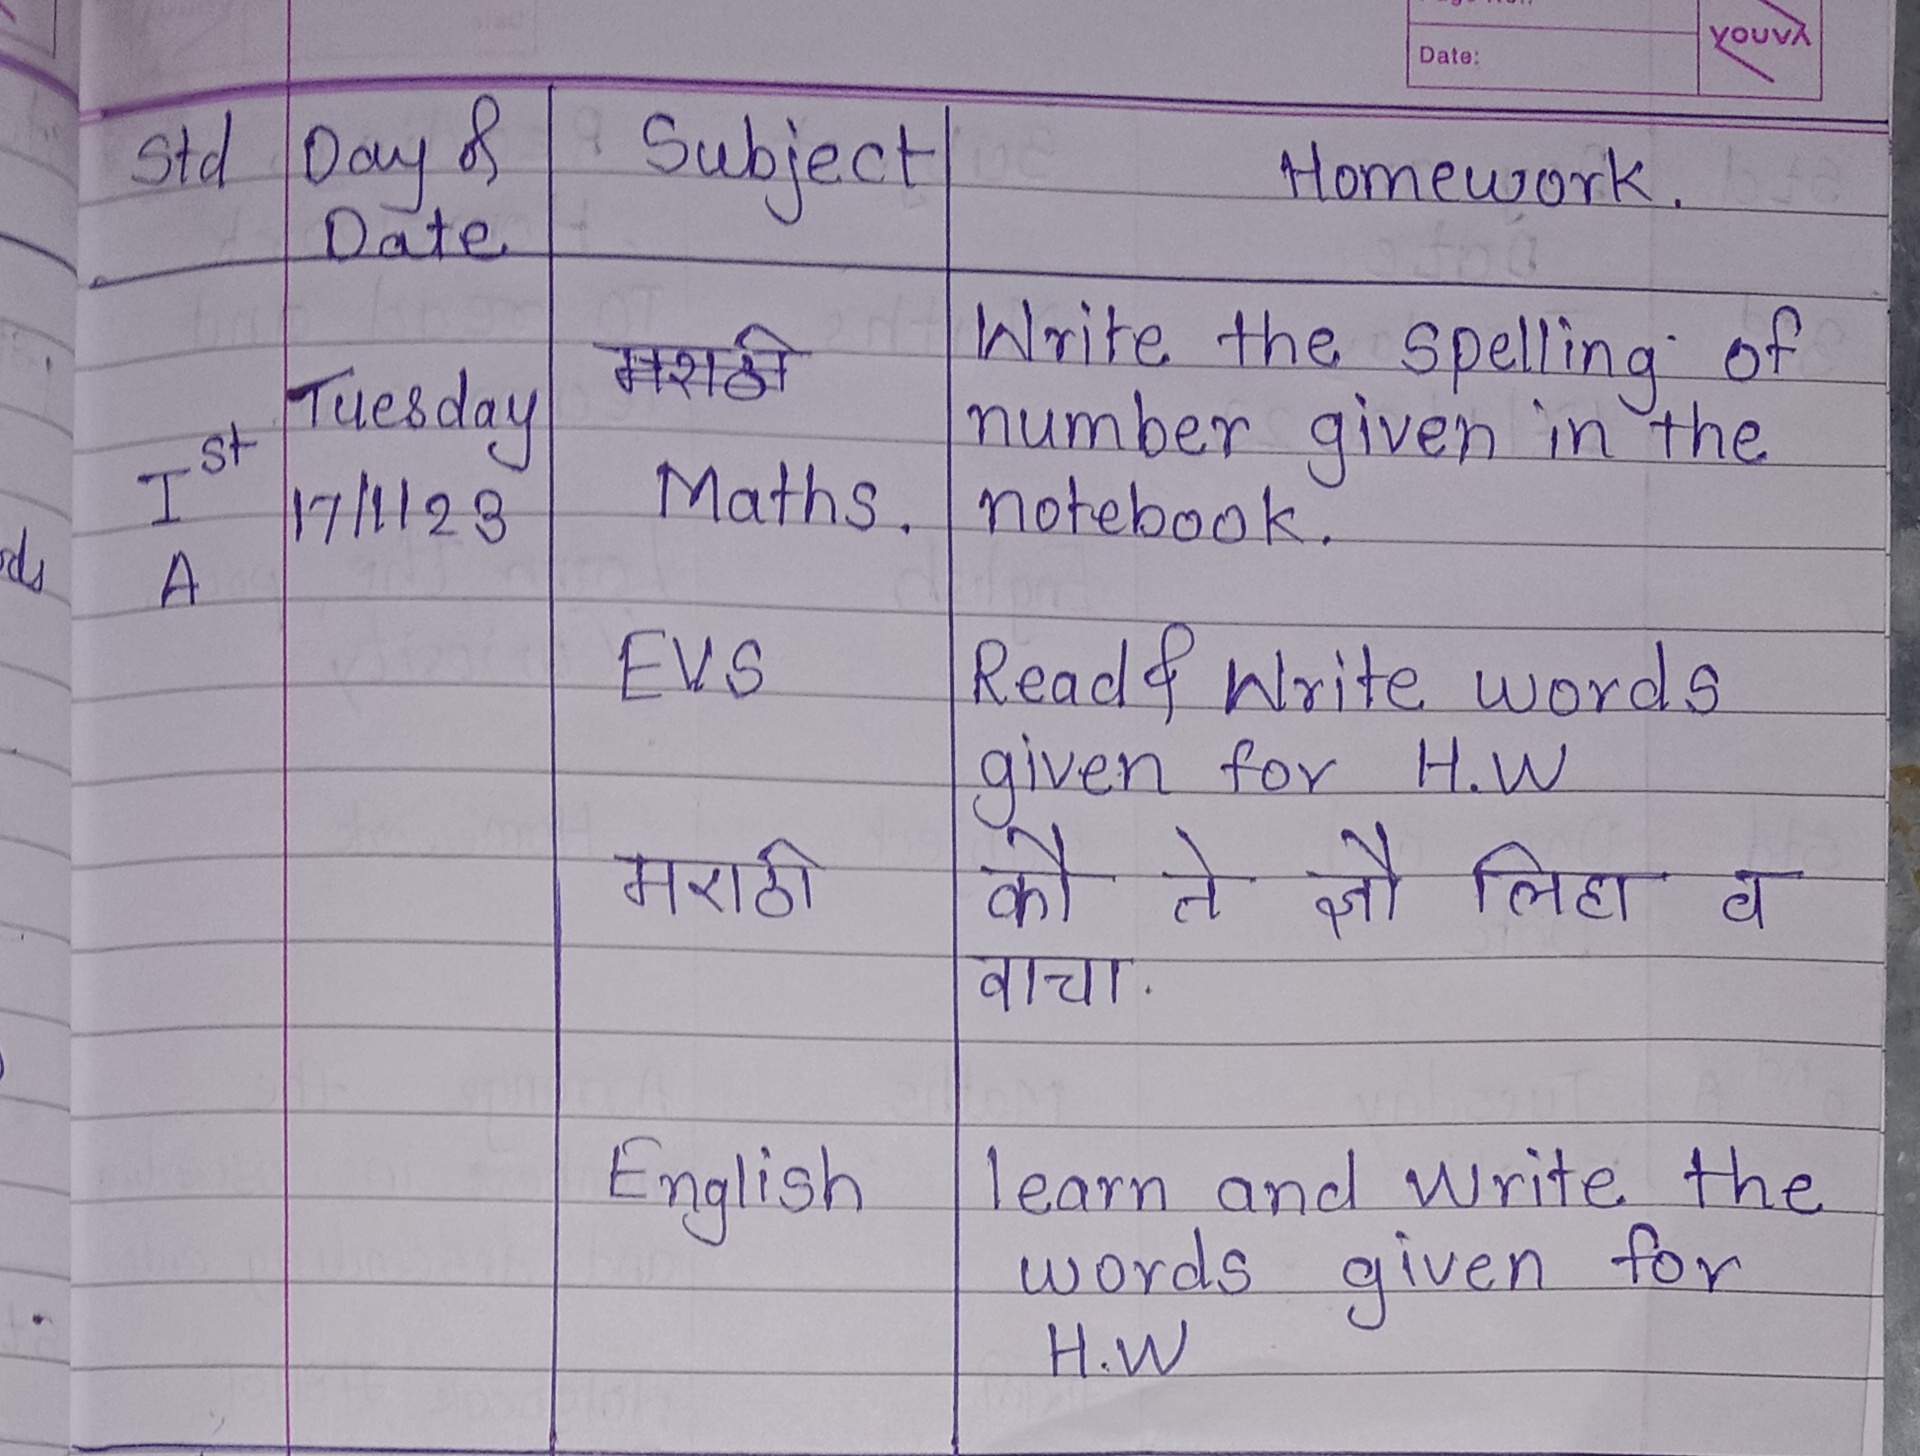 Date:
youva
Std Day & Subject Homework.
Date
मराठी Write the spelling of
Tuesday number given in the
Ist 17/1/23 Maths. notebook.
A
EVS Read & Write words
given for H.W
मराठी कौ ते ज्ञौ लिहा व
वाचा.
English learn and write the
words given for
H.W